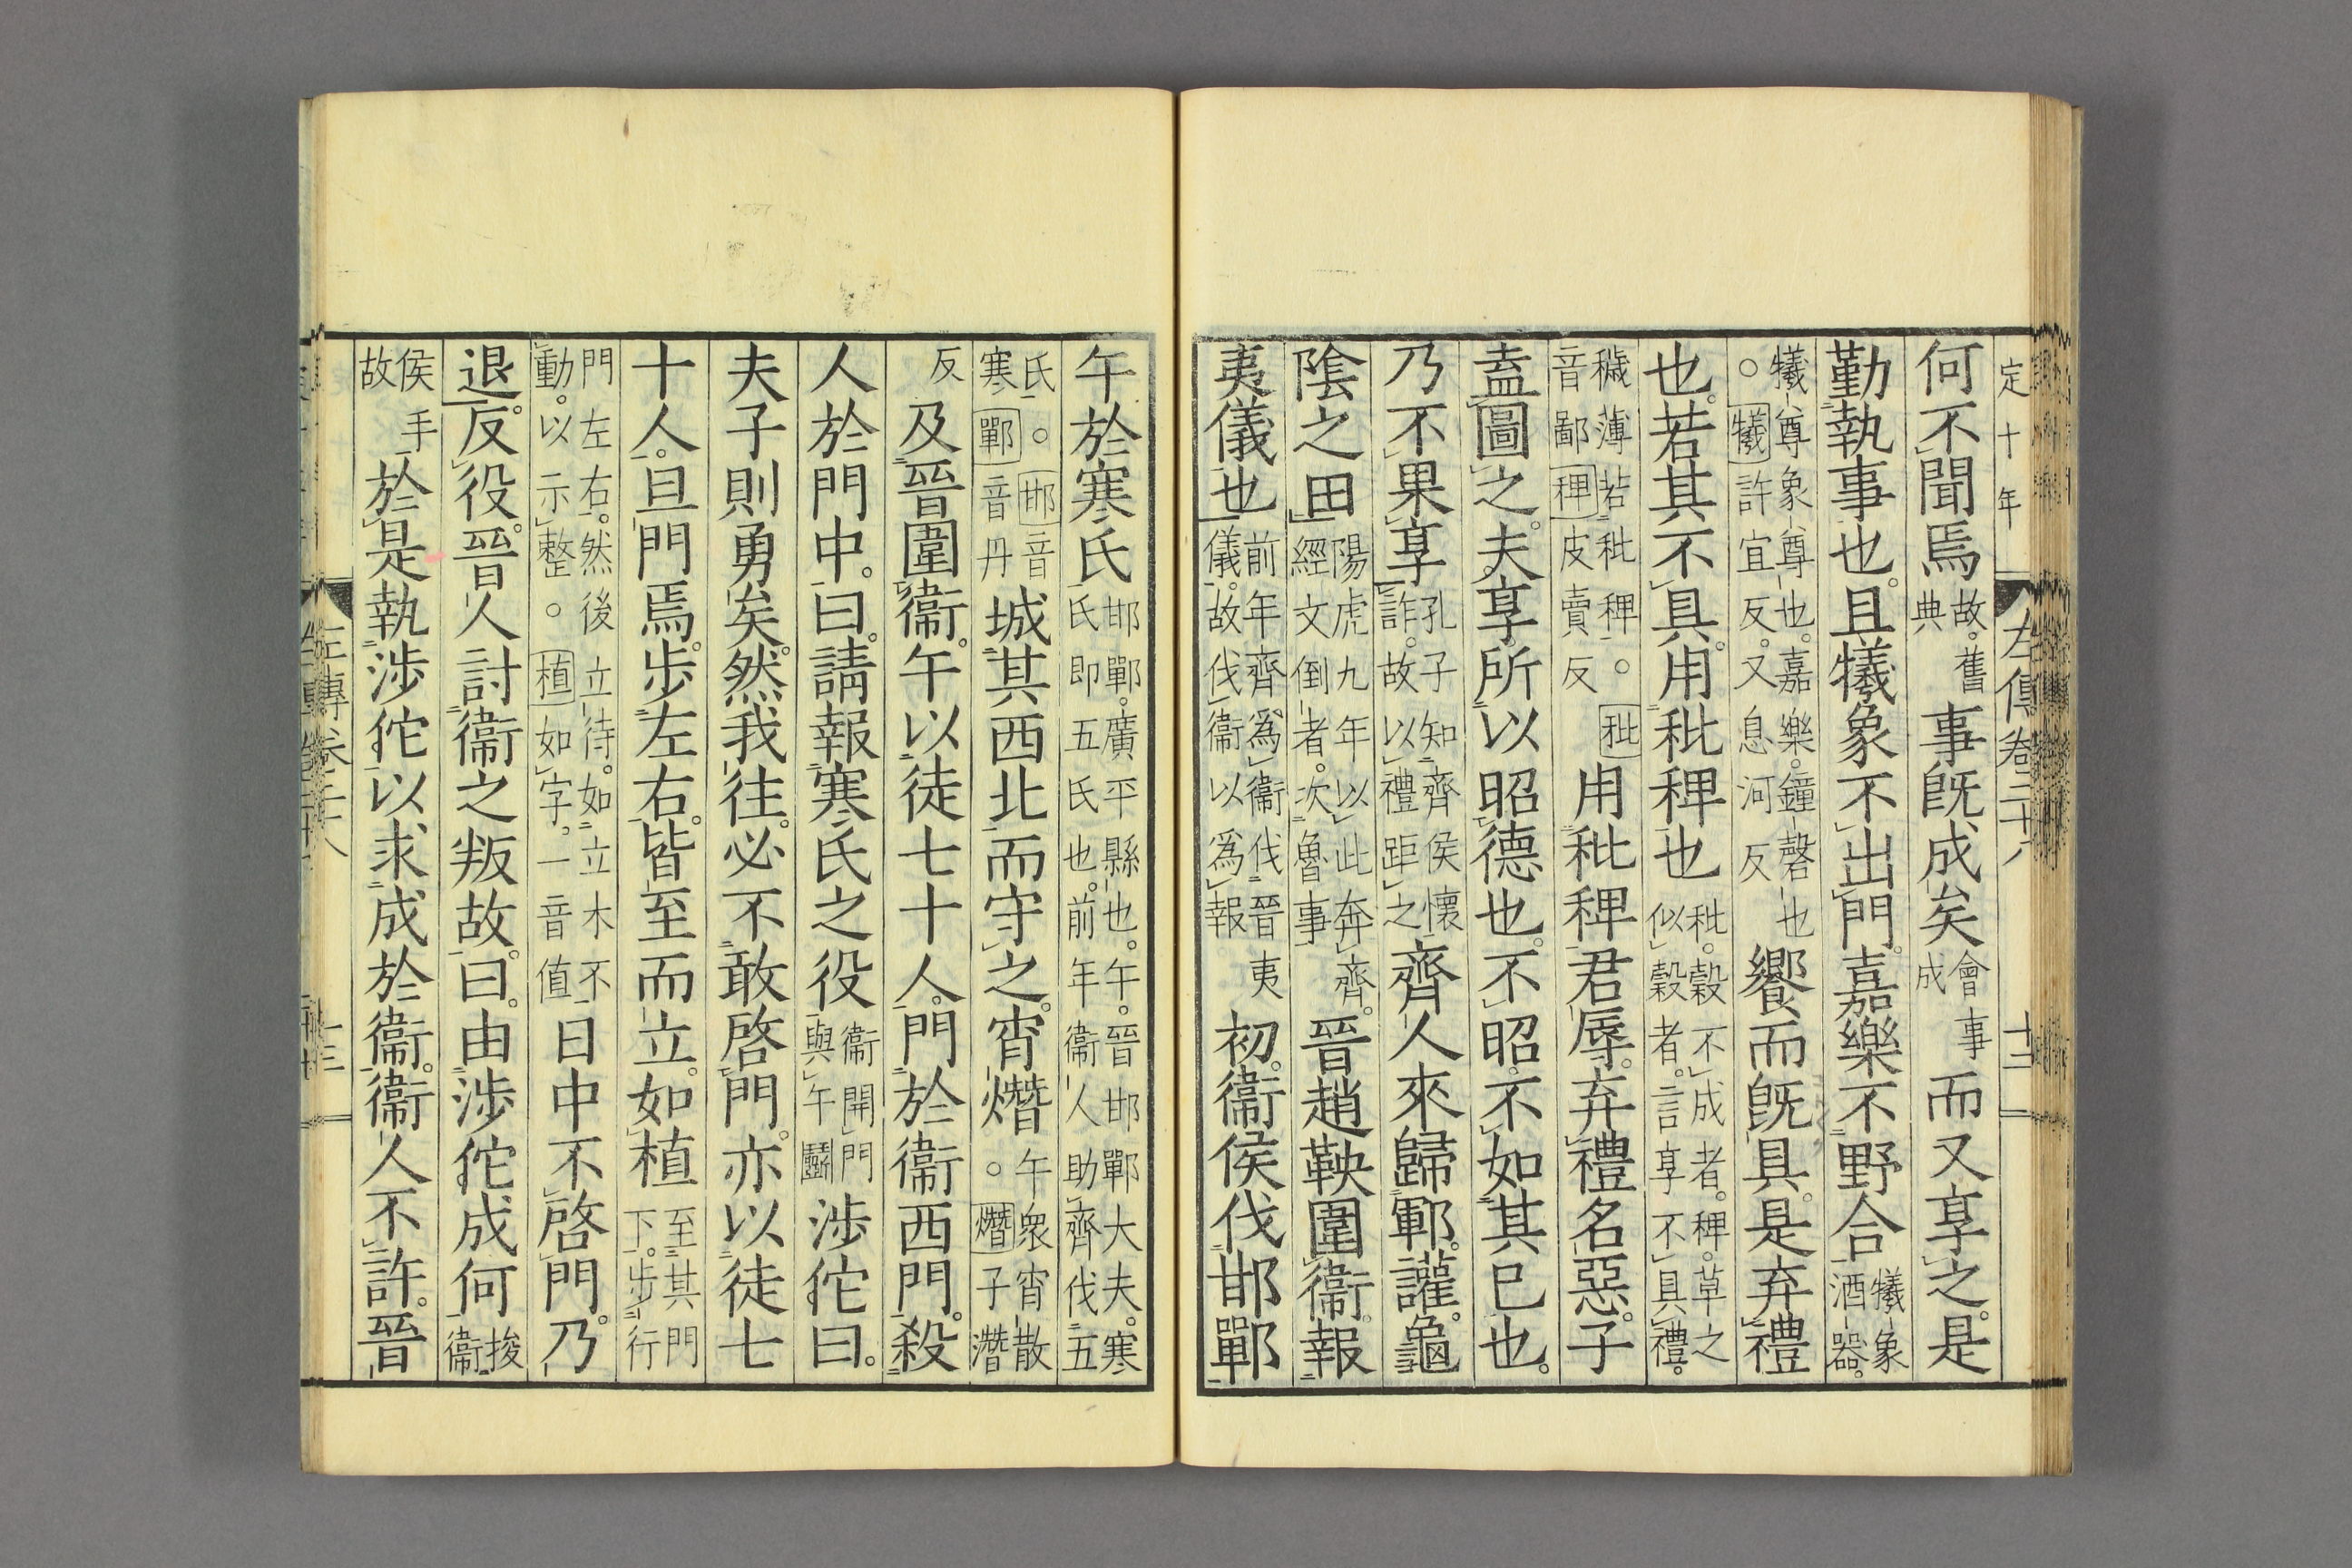 定十年
左傳卷二十八
十二
何不聞焉故舊典事既成矣會事成而又享之。是
勤執事也。且犧象不出門。嘉樂不野合犧象酒器。
犧尊象尊也。嘉樂。鐘磬也。○犧許宜反。又息河反饗而既具。是弃禮
也。若其不具。用秕稗也秕。穀不成者。稗。草之似穀者。言享不具禮。
穢薄若秕稗。○秕音鄙稗皮賣反用秕稗君辱。弃禮名惡。子
盍圖之。夫享所以昭德也。不昭。不如其已也。
乃不果享孔子知齊侯懷詐。故以禮距之齊人來歸鄆。讙。龜
陰之田陽虎九年以此奔齊。經文倒者。次魯事晉趙鞅圍衞。報
夷儀也前年齊爲衞伐晉夷儀。故伐衞以爲報初。衞侯伐邯鄲
午於寒氏邯鄲。廣平縣也。午。晉邯鄲大夫。寒氏即五氏也。前年衞人助齊伐五
氏。○邯音寒鄲音丹城其西北而守之。宵熸午衆宵散。○熸子潛
反及晉圍衞。午以徒七十人。門於衞西門。殺
人於門中。曰。請報寒氏之役衞開門與午鬭涉佗曰。
夫子則勇矣。然我往。必不敢啓門。亦以徒七
十人。旦門焉。步左右。皆至而立。如植至其門下。步行
門左右。然後立待。如立木不動。以示整。○植如字。一音値日中不啓門。乃
退。反役。晉人討衞之叛故。曰。由涉佗成何捘衞
侯手故於是執涉佗以求成於衞。衞人不許。晉